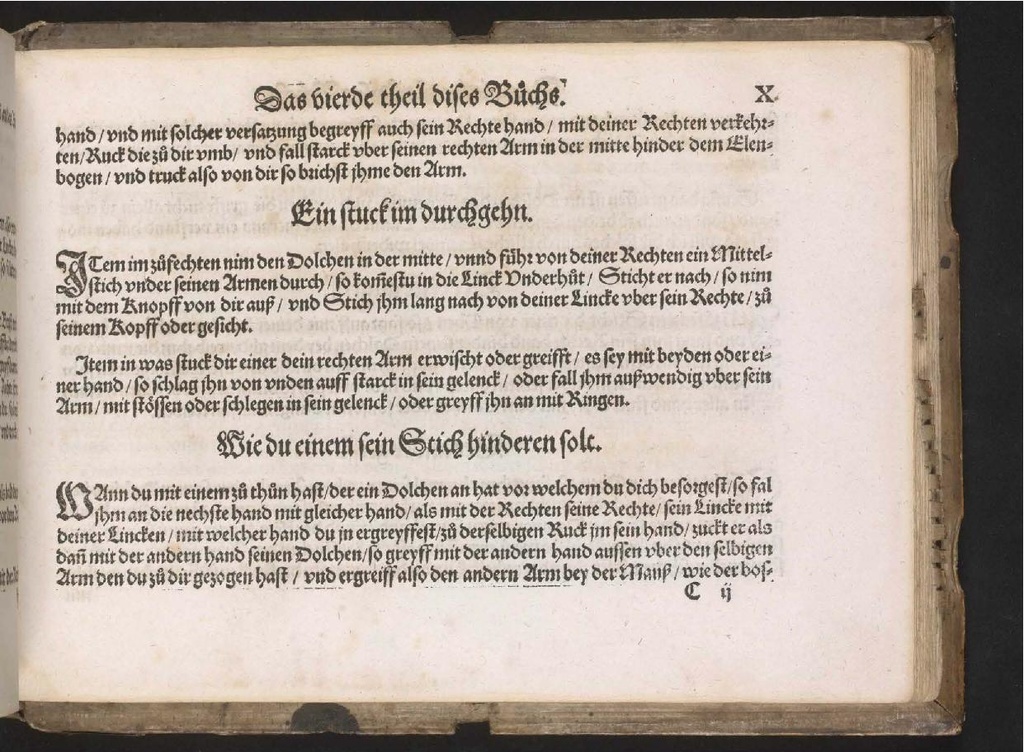 Das vierde theil dises Bůchs. X.
hand / vnd mit solcher versatzung begreyff auch sein Rechte hand / mit deiner Rechten verkehr-
ten / Ruck die zů dir vmb / vnd fall starck vber seinen rechten Arm in der mitte hinder dem Elen-
bogen / vnd truck also von dir so brichst jhme den Arm.
Ein stuck im durchgehn.
ITem im zůfechten nim den Dolchen in der mitte / vnnd fůhr von deiner Rechten ein Mittel-
stich vnder seinen Armen durch / so kom̃estu in die Linck Vnderhůt / Sticht er nach / so nim
mit dem Knopff von dir auß / vnd Stich jhm lang nach von deiner Lincke vber sein Rechte / zů
seinem Kopff oder gesicht.
Item in was stuck dir einer dein rechten Arm erwischt oder greifft / es sey mit beyden oder ei-
ner hand / so schlag jhn von vnden auff starck in sein gelenck / oder fall jhm außwendig vber sein
Arm / mit stössen oder schlegen in sein gelenck / oder greyff jhn an mit Ringen.
Wie du einem sein Stich hinderen solt.
WAnn du mit einem zů thůn hast / der ein Dolchen an hat vor welchem du dich besorgest / so fal
jhm an die nechste hand mit gleicher hand / als mit der Rechten seine Rechte / sein Lincke mit
deiner Lincken / mit welcher hand du jn ergreyffest / zů derselbigen Ruck jm sein hand / zuckt er als
dañ mit der andern hand seinen Dolchen / so greyff mit der andern hand aussen vber den selbigen
Arm den du zů dir gezogen hast / vnd ergreiff also den andern Arm bey der Mauß / wie der bos-
C ij